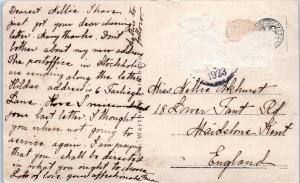 Dearest Nellie I have
just got your dear cheering
letter. Many thanks. Dont
bother about my new address
The postoffice in Stockholm
are sending along the letter
Hildas address is Farleigh
Lane. Have I misunderstood
your last letter I thought
you where not going to
service again. I am praying
that you shall be directed
in what you ought to choose
Lots of love your affectionate
1923
Miss Nellie
18 Lower Fant Rd
Maidstone Kent
England